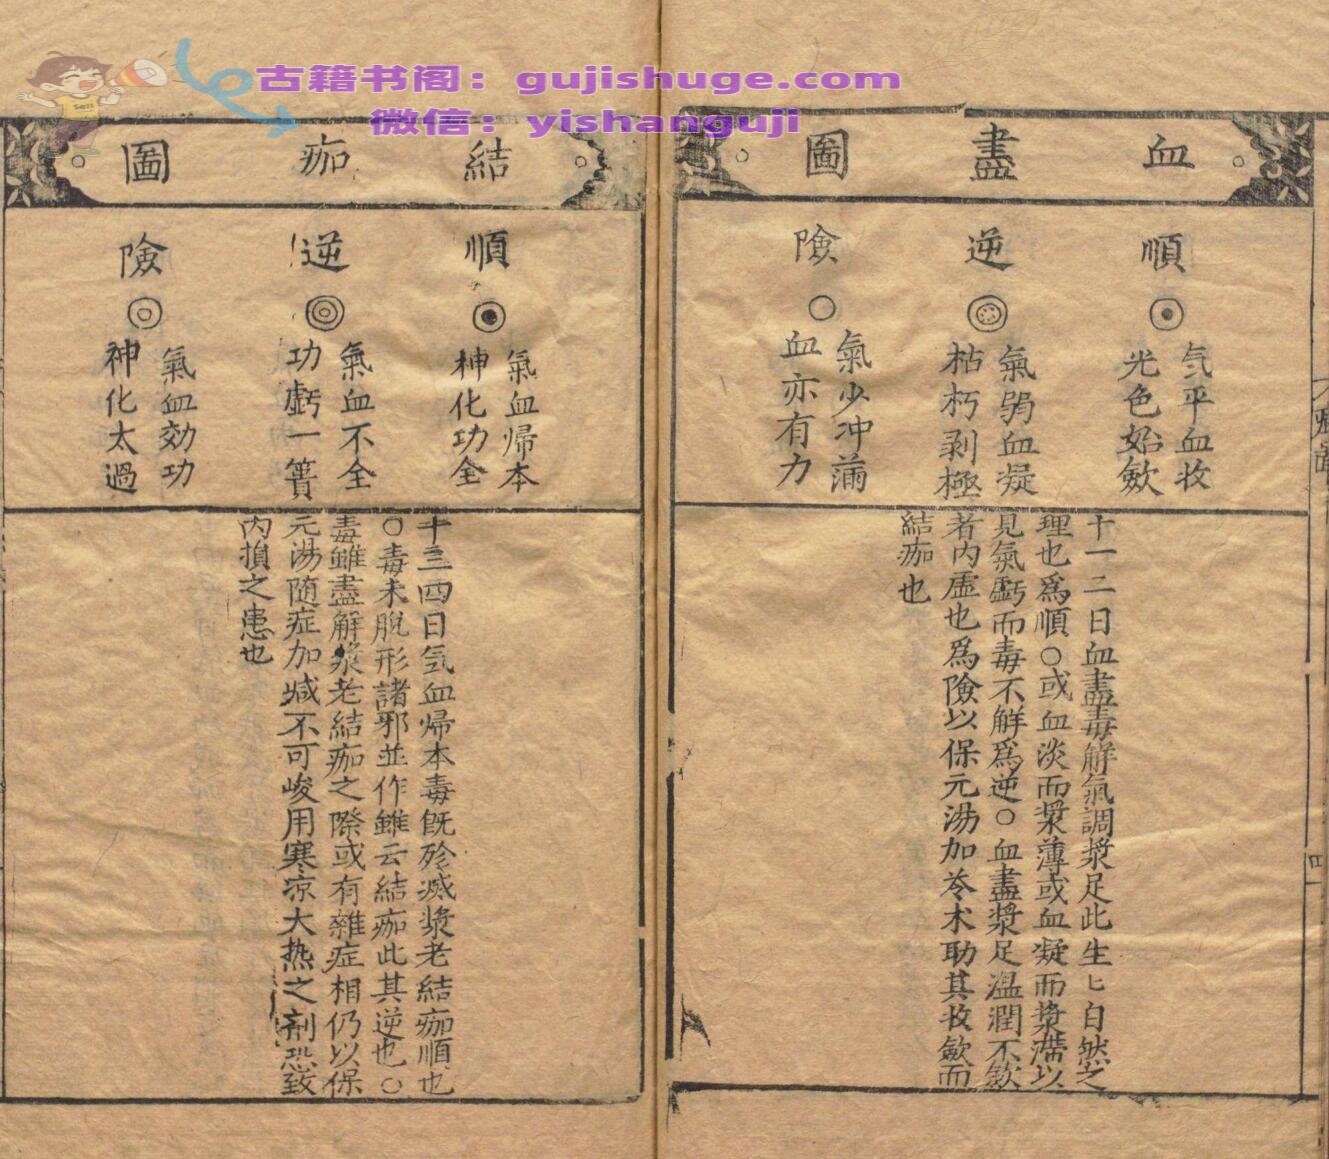 古籍书阁：gujishuge.com
微信：yishanguji
血盡圖
順
气平血收
光色始歛
逆
氣弱血凝
枯朽剥極
險
氣少冲滿
血亦有力
十一二日血盡毒解氣調漿足此生匕自然之
理也爲順○或血淡而漿薄或血凝而漿滯以
見氣虧而毒不解爲逆○血盡漿足温潤不歛
者内虛也爲險以保元湯加苓术助其收歛而
結痂也
結痂圖
順
氣血帰本
神化功全
逆
氣血不全
功虧一簣
險
氣血効功
神化太過
十三四日気血帰本毒既殄滅漿老結痂順也
○毒未脫形諸邪並作雖云結痂此其逆也○
毒雖盡解漿老結痂之際或有雜症相仍以保
元湯随症加减不可峻用寒凉大热之剤恐致
内損之患也